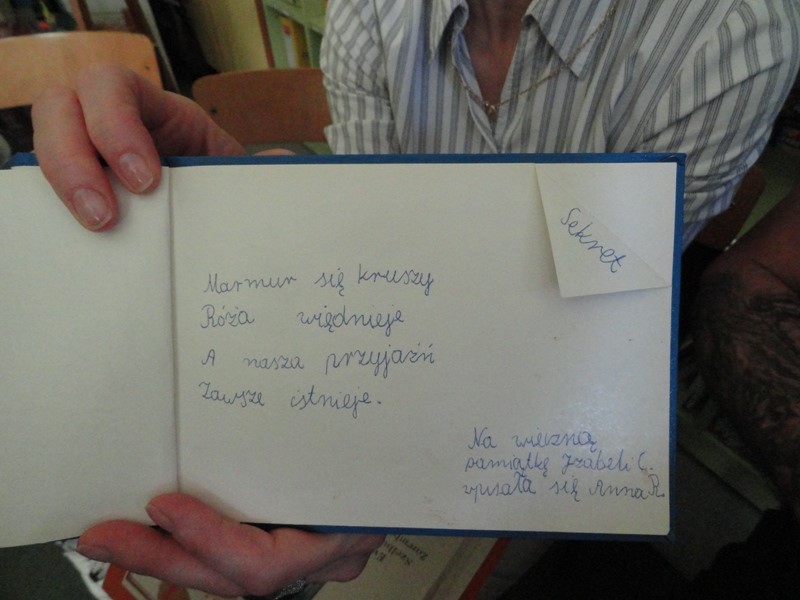 Sekret
Marmur się kruszy
Róża więdnieje
A nasza przyjaźń
Zawsze istnieje.
Na wieczną
pamiątkę Izabeli C.
wpisała się Anna R.